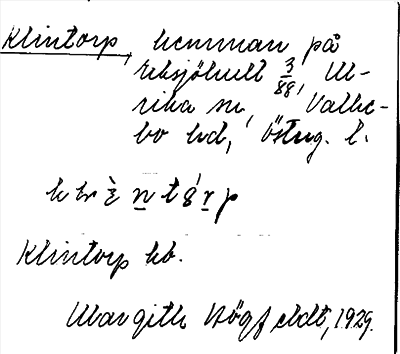 Klintorp, hemman på
Rëksjöhult 3/88, Ul-
rika sn, Valke-
bo hd, Östug. l.
Klintorp hb.
Margith Högfeldt, 1929.